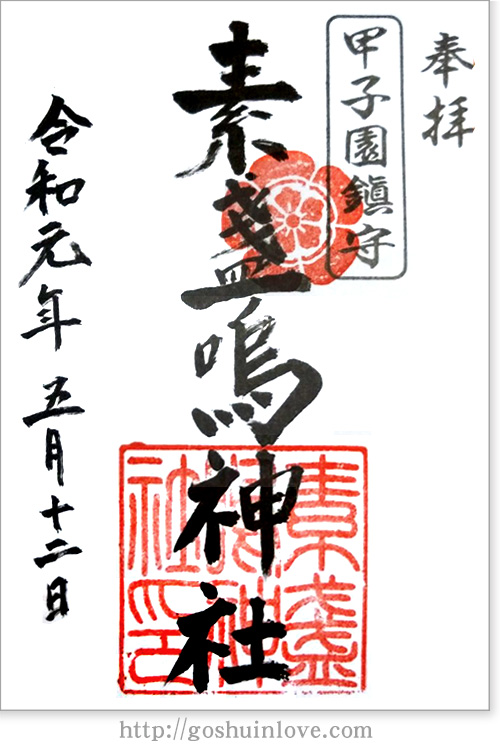 奉拝
甲子園鎮守
素盞嗚神社
素盞
嗚神
社印
令和元年五月十二日
http://goshuinlove.com